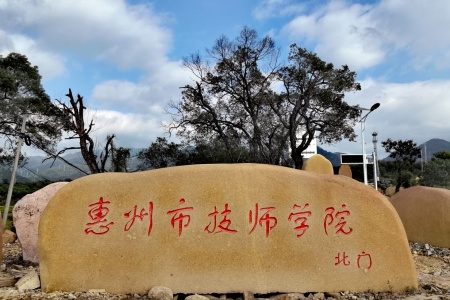 惠州市技师学院
北门